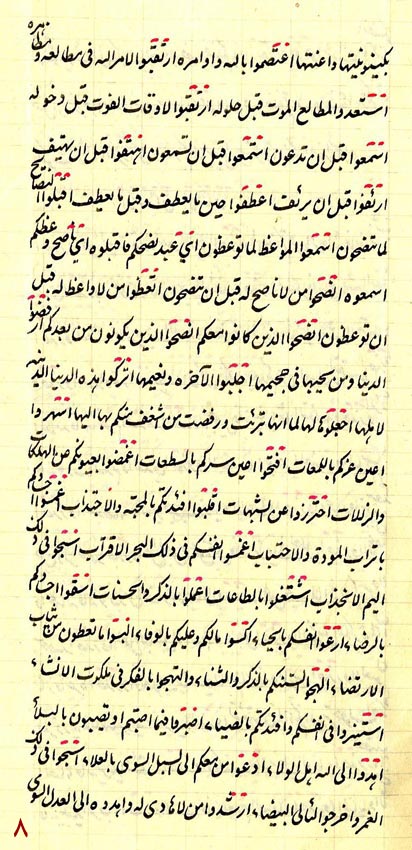 بكينونيتها واعنتها اعتصموا بالله واوامره ارتقبوا الامر الله فى مطالعه و مظاهره
استعدوا لمطالع الموت قبل حلوله ارتقبوا لاوقات الفوت قبل دخوله
اسمعوا قبل ان تدعون استمعوا قبل ان تسمعون اهتفوا قبل ان يهتيف
ارئفوا قبل ان يرئف اعطفوا حين ما يعطف و قبل ما يعطيف اقبلوا النصايح
لما تنصحون استمعوا المواعظ لما توعظون اى عبيد نصحكم فاقبلوه اى ناصح وعظكم
اسمعوه انتصحوا من لا ناصح له قبل ان تنصحون اتعظوا من لا واعظ له قبل
ان توعظون انصحوا الذين كانوا معكم انصحوا الذين يكونون من بعدكم ارفضوا
الدنيا و من سجيها فى جحيمها اجلبوا الآخره و نعيمها اتركوا هذه الدنيا الدنيه
لاهلها اجعلوها لها لما انها تبرئت و رفضت من اشغف منكم بها اليها اشهروا
اعين عزكم باللمعات افتحوا اعين سركم بالسطعات اغمضوا بعيونكم عن الهلكات
والزلات احترزوا عن الشبهات اقلبوا افئدتكم بالمحبة والاجتذاب اغمسوا اجسادكم
بتراب المودة والاحتباب اغمسوا انفسكم فى ذلك البحر الاقتراب اسبحوا فى ذلك
اليم الانجذاب اشتغلوا بالطاعات اعملوا بالذكر والحسنات اسقوا اجسادكم
بالرضاء ارعوا انفسكم بالحياء اكسوا مالكم وعليكم بالوفاء البسوا ما تعطون من ثياب
الارتضاء الهجوا السنتكم بالذكر والثناء والتهجوا بالفكر فى ملكوت الانشاء
استنيروا فى انفسكم وافئدتكم بالضياء اصبروا فيما اصبتم او تصيبون بالبلاء
اهدوا الى الله اهل الولاء ادعوا من معكم الى السبل السوى بالعلاء اسبحوا فى ذلك
الغمر واخرجوا لئالى البيضاء ارشدوا من لا هادى له واهدوه الى العدل السوى
٨